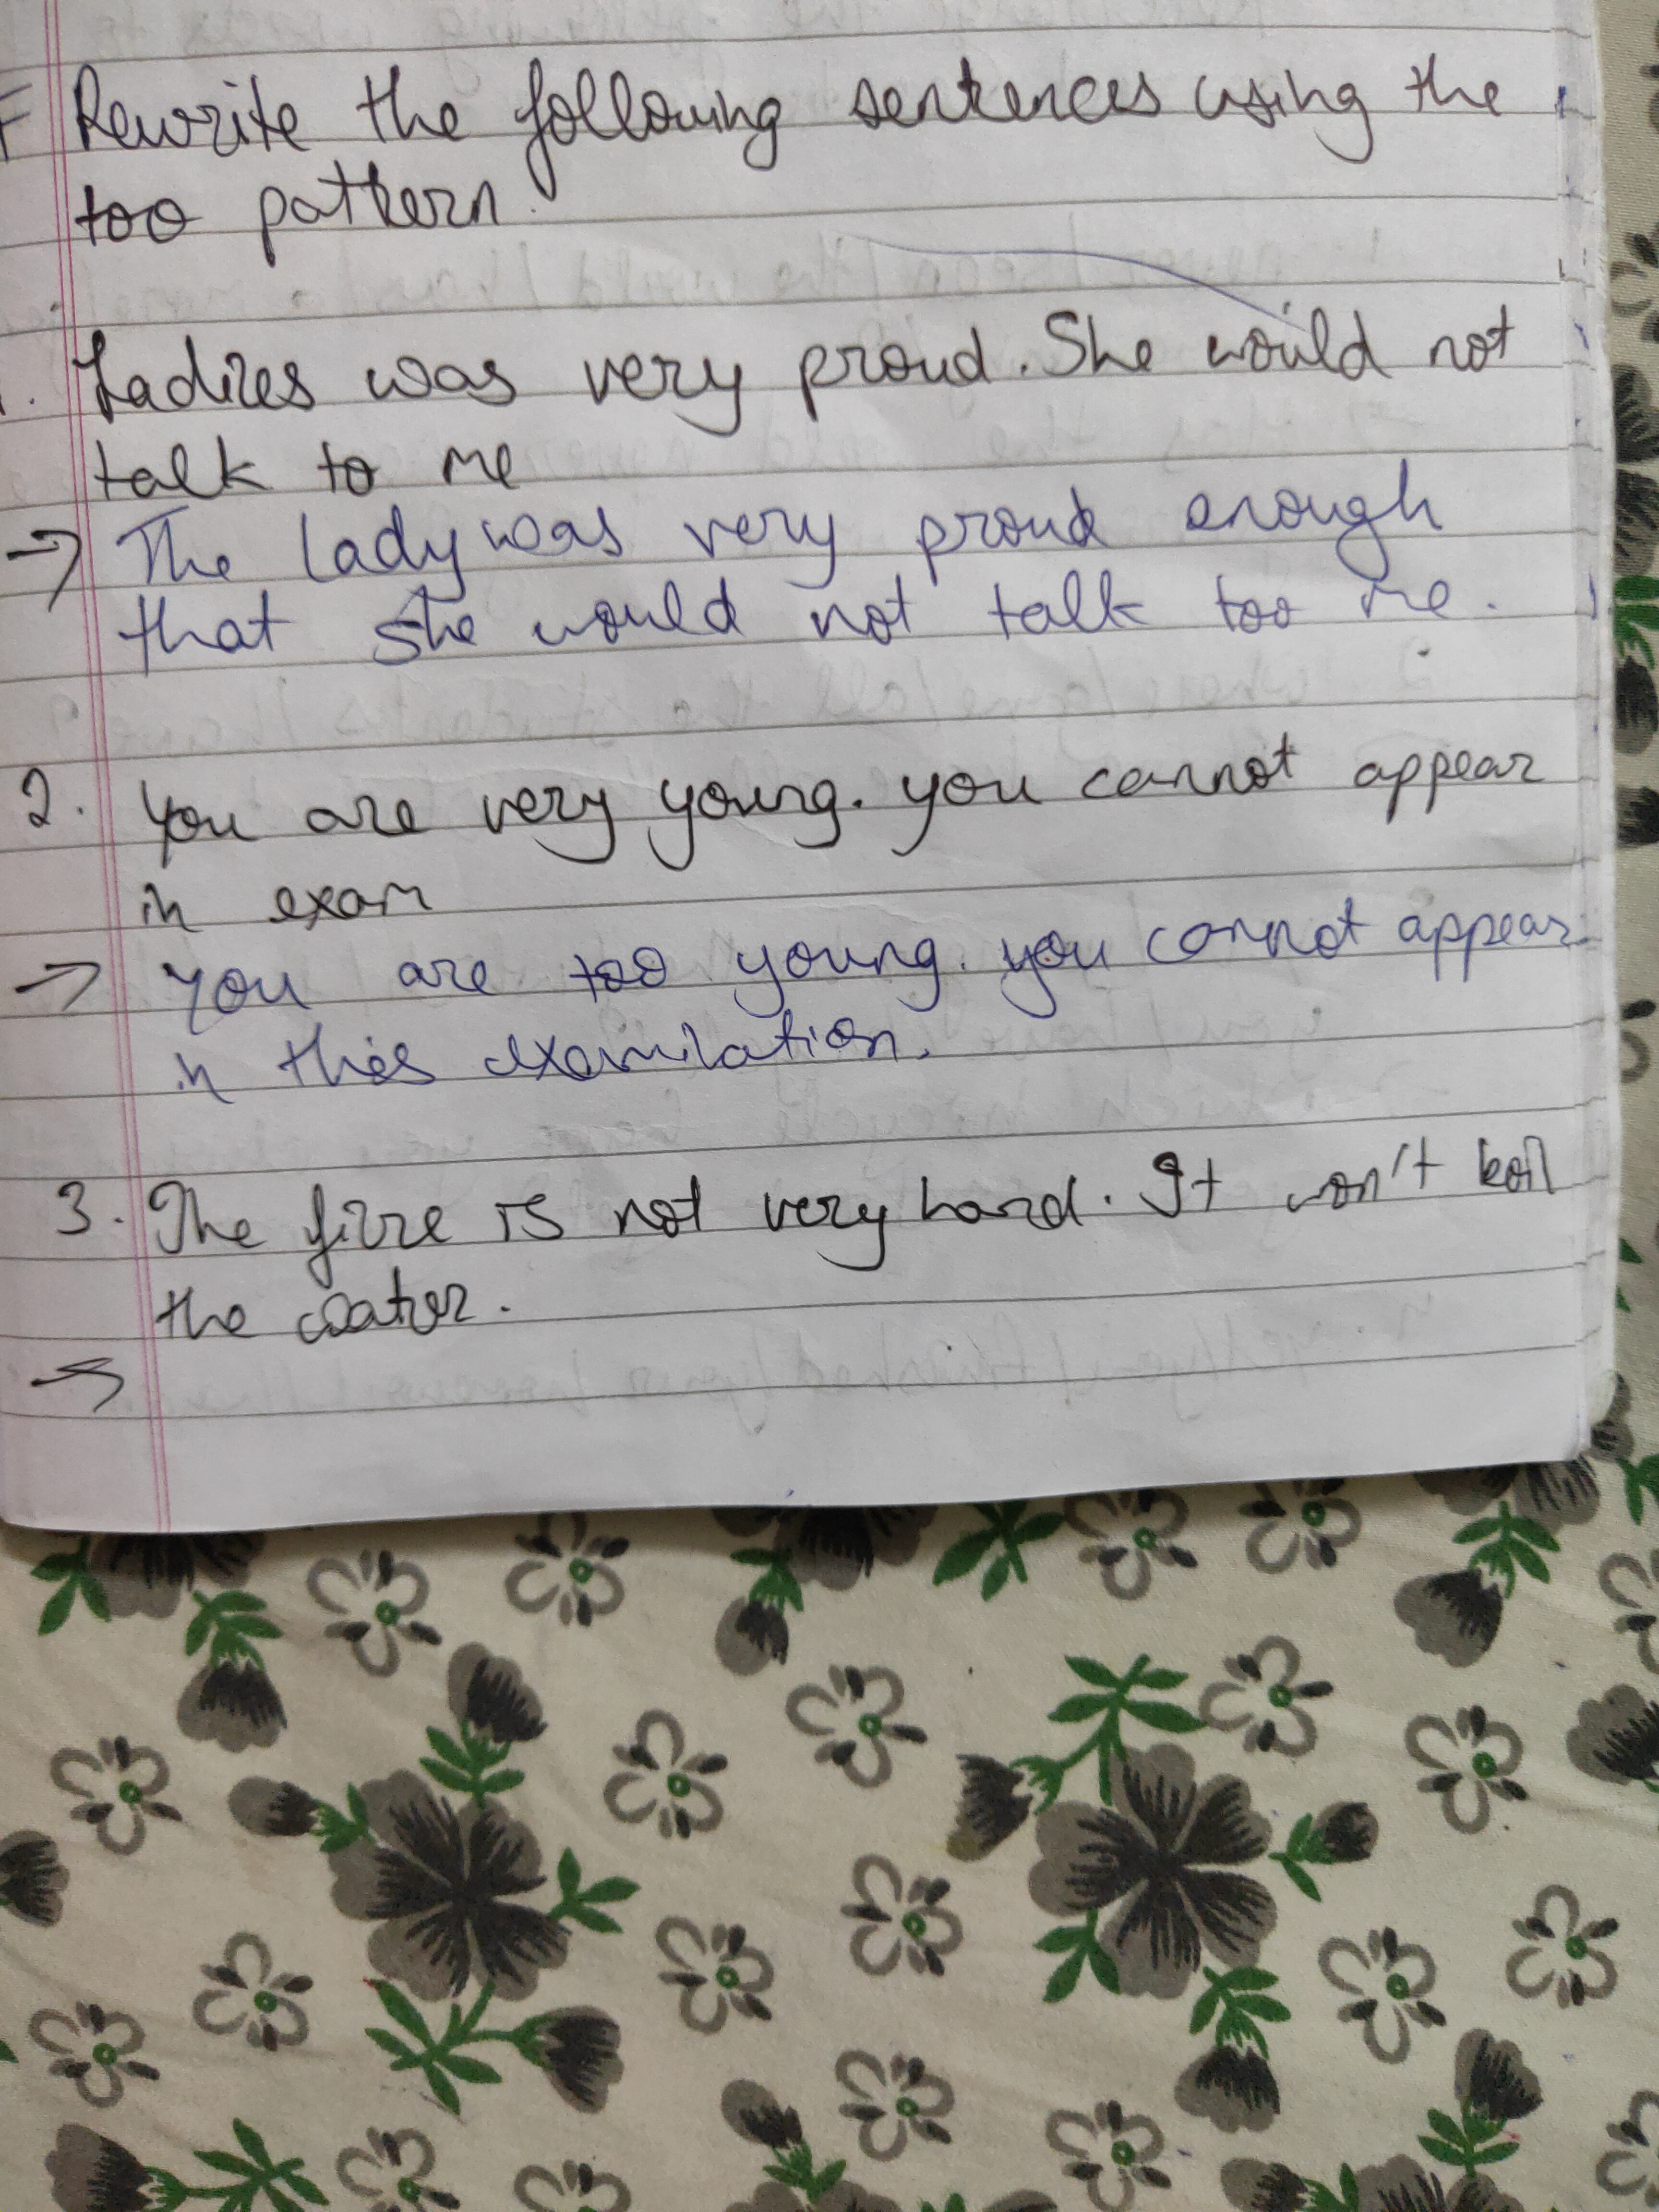 F Rewrite the following sentences using the
too pattern.
1. Ladies was very proud. She would not
talk to me
→ The lady was very proud enough
that she would not talk too me.
2. You are very young. you cannot appear
in exam
→ You are too young. you cannot appear
in this examination.
3. The fire is not very hard. It won't boil
the water.
→